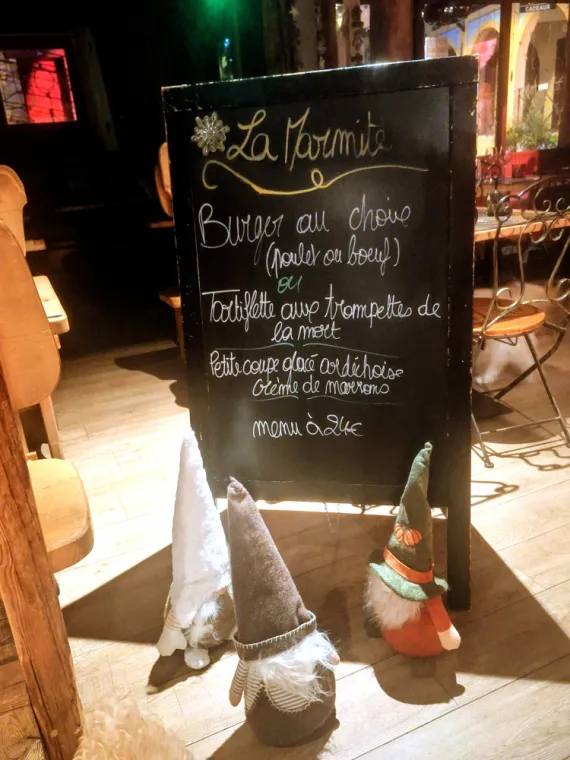 CADEAUX
La Marmite
Burger au choix
(poulet ou boeuf)
ou
Tartiflette aux trompettes de
la mort
Petite coupe glacé ardéchoise
Crème de marrons
menu à 24€